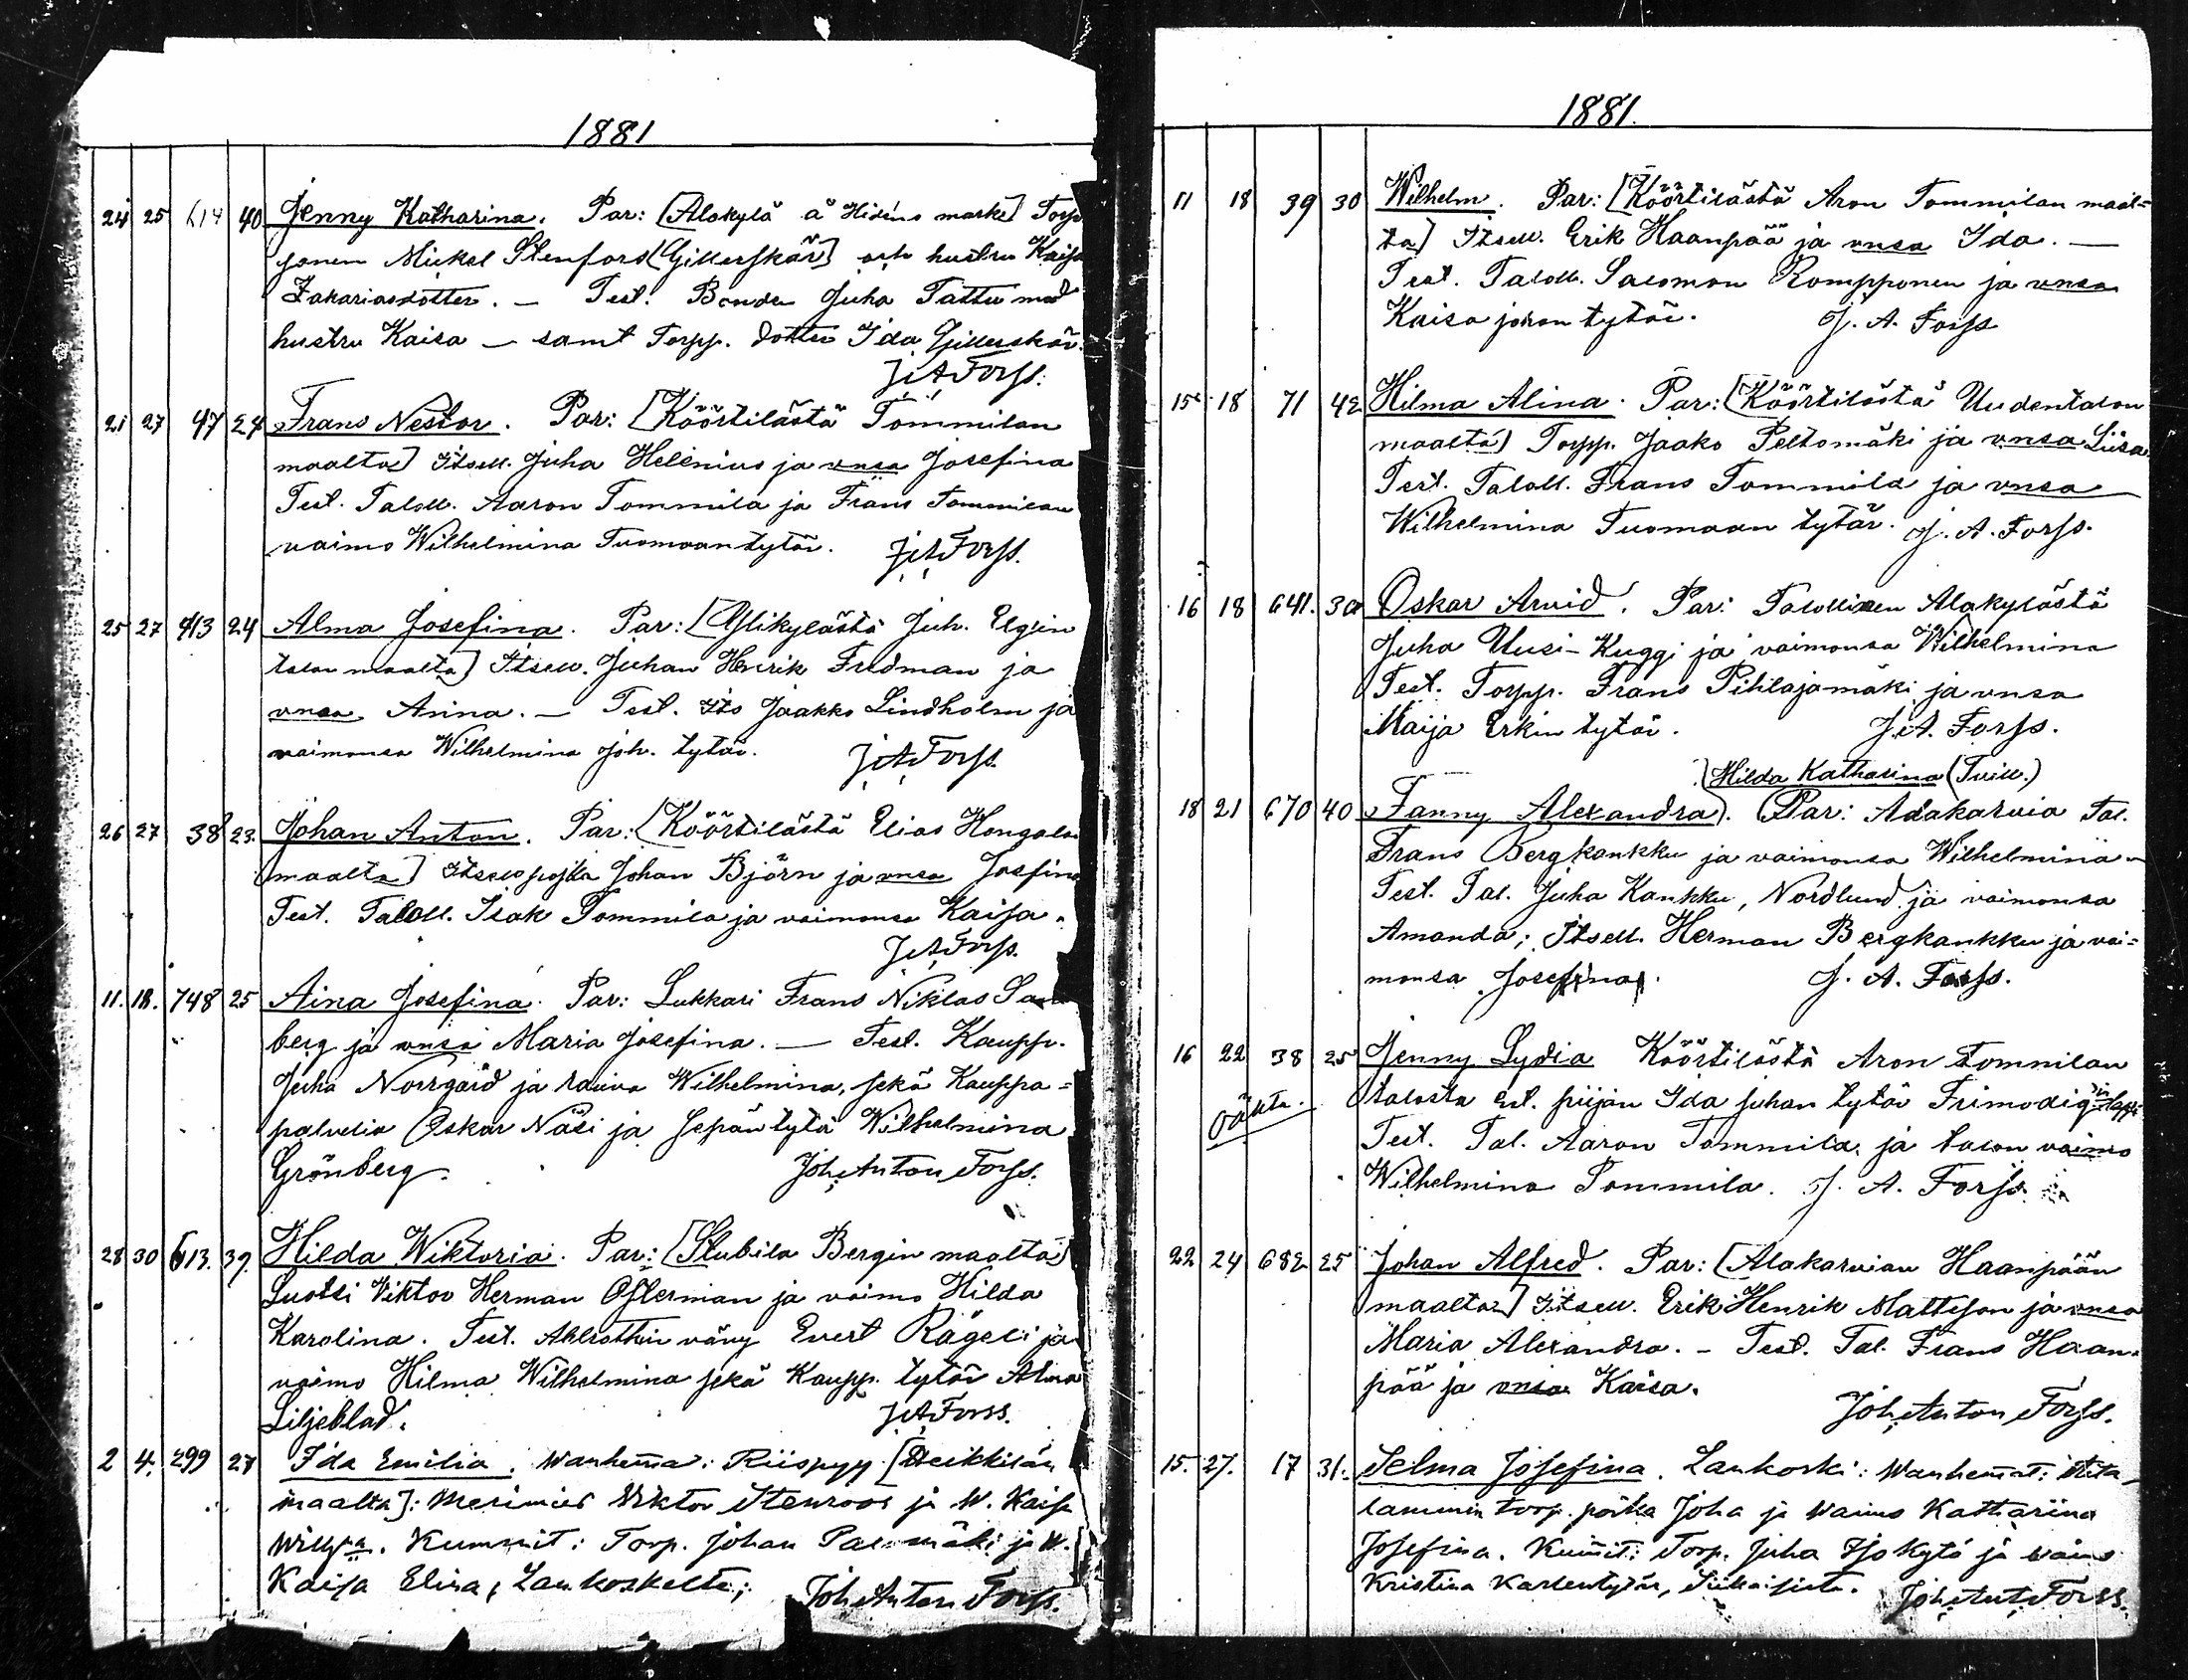 1881
24 25 614 40 Jenny Katharina. Par: [Alakylä å Hidéns marke] Torp
sonen Mickel Stenfors [Gillerskär] och hustru Kaisa
Zakariasdotter. — Test. Bonden Juha Tattu med
hustru Kaisa — samt Torpp. dotter Ida Gillerskär.
J. A. Forss.
21 27 47 24 Frans Nestor. Par: [Köörtilästä Tommilan
maalta] Itsell. Juha Helenius ja vnsa Josefina
Test. Taloll. Aaron Tommila ja Frans Tommilan
vaimo Wilhelmina Tuomaantytär. J. A. Forss.
25 27 413 24 Alma Josefina. Par: [Ylikylästä Juh. Elgin
talon maalta] Itsell. Juhan Henrik Fredman ja
vnsa Anna. — Test. Its Jaakko Lindholm ja
vaimonsa Wilhelmina Joh. tytär. J. A. Forss.
26 27 38 23. Johan Anton. Par: [Köörtilästä Elias Hongalan
maalta] Itsell poika Johan Björn ja vnsa Josfina
Test. Taloll. Isak Tommila ja vaimonsa Kaisa.
J. A. Forss.
11. 18. 748 25 Aina Josefina. Par: Lukkari Frans Niklas
berg ja vnsa Maria Josefina. — Test. Kaupp.
Juha Norrgård ja rouva Wilhelmina, sekä Kauppa=
palvelia Oskar Näsi ja Sepäntytä Wilhelmina
Grönberg. Joh. Anton Forss.
28 30 613. 39. Hilda Wiktoria. Par: [Stubila Bergin maalta]
Luotsi Viktor Herman Österman ja vaimo Hilda
Karolina. Test. vävy Evert ja
vaimo Hilma Wilhelmina sekä Kaupp. tytär Alma
Liljeblad. J. A. Forss.
2 4. 299 27 Ida Emilia. Wanhemma: Riispyy [Heikkilän
maalta]: Merimies Viktor Stenroos ja W. Kaisa
Kummit: Torp. Johan ja W.
Kaisa Elina, Lankoskelta; Joh. Anton Forss.
1881.
11 18 39 30 Wilhelm. Par: [Köörtilästä Aron Tommilan maal=
ta] Itsell. Erik Haanpää ja vnsa Ida. —
Test. Taloll. Salomon Rompponen ja vnsa
Kaisa johan tytär. J. A. Forss
15 18 71 42 Hilma Alina. Par: [Köörtilästä Uudentalon
maalta] Torpp. Jaako Peltomäki ja vnsa Liisa.
Test. Taloll. Frans Tommila ja vnsa
Wilhelmina Tuomaan tytär. J. A. Forss.
16 18 641. 30 Oskar Arvid. Par: Talollinen Alakylästä
Juha Uusi-Kuggi ja vaimonsa Wilhelmina
Test. Torpp. Frans Pihlajamäki ja vnsa
Maija Erkin tytär. J. A. Forss.
Hilda Katharina (Tvill.)
18 21 670 40 Fanny Alexandra). (Par: Alakarvia Tal.
Frans Bergkankku ja vaimonsa Wilhelmina
Test. Tal. Juha Kankku, Nordlund ja vaimonsa
Amanda; Itsell. Herman Bergkankku ja vai=
monsa Josefina. J. A. Forss.
16 22 38 25 Jenny Lydia Köörtilästä Aron Tommilan
Oäkta. talosta ent. piijan Ida Juhan tytär Frimodigin
Test. Tal. Aaron Tommila, ja talon vaimo
Wilhelmina Tommila. J. A. Forss
22 24 682 25 Johan Alfred. Par: [Alakarvian Haanpään
maalta] Itsell. Erik Henrik Mattsson ja vnsa
Maria Alexandra. – Test. Tal. Frans Haan=
pää ja vnsa Kaisa.
Joh. Anton Forss.
15. 27. 17 31. Selma Josefina. Lankoski: Wanhemat:
lammin torp. poika Joha ja Waimo Kathariina
Josefina. Kummit: Torp. Juha Isokytö ja waimo
Kristina Karlentytär, Siikaisista. Joh. Ant. Forss.